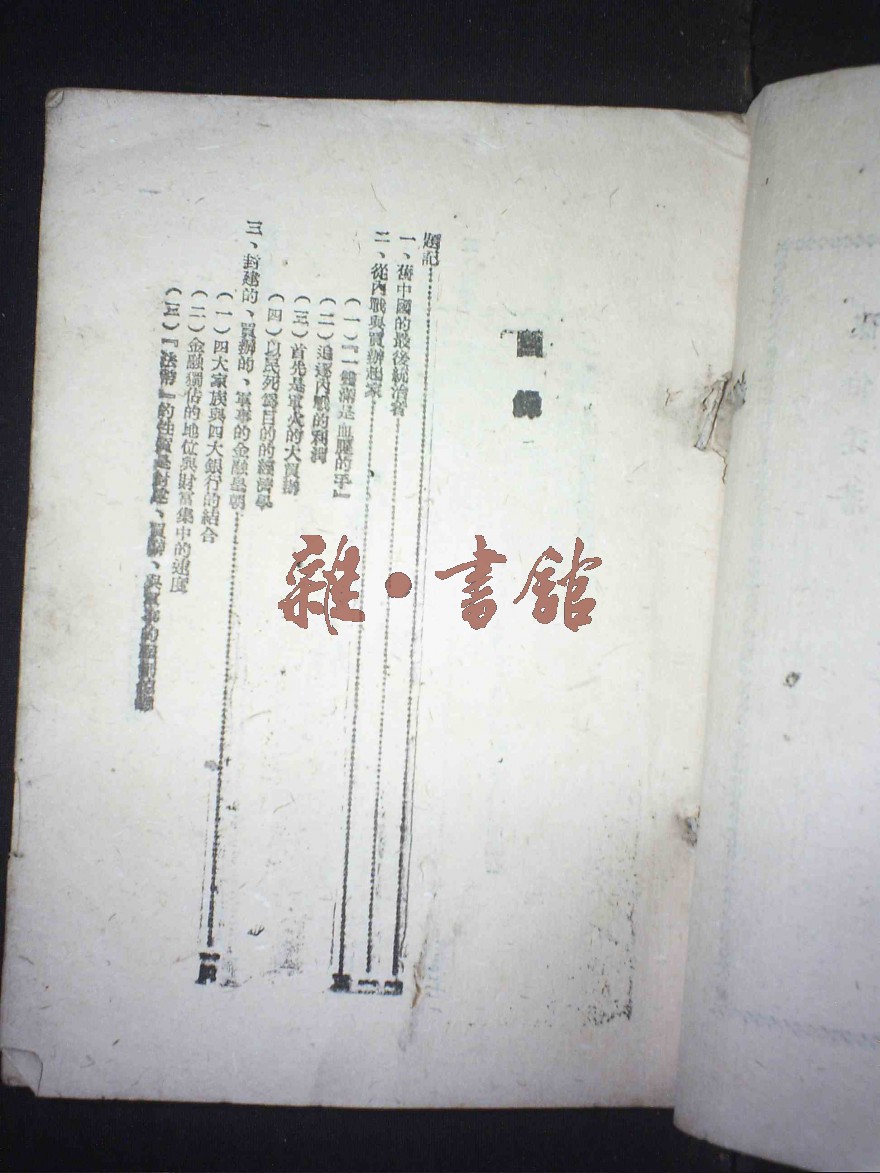 目錄
題記
一、舊中國的最後統治者
二、從內戰與買辦起家
（一）『一雙滿是血腥的手』
（二）追逐內戰的利潤
（三）首先是軍火的大買辦
（四）以民死爲目的的經濟學
三、封建的、買辦的、軍事的金融皇朝
（一）四大家族與四大銀行的結合
（二）金融獨佔的地位與財富集中的速度
（三）『法幣』的性質是封建、買辦、與軍事的
雜·書館